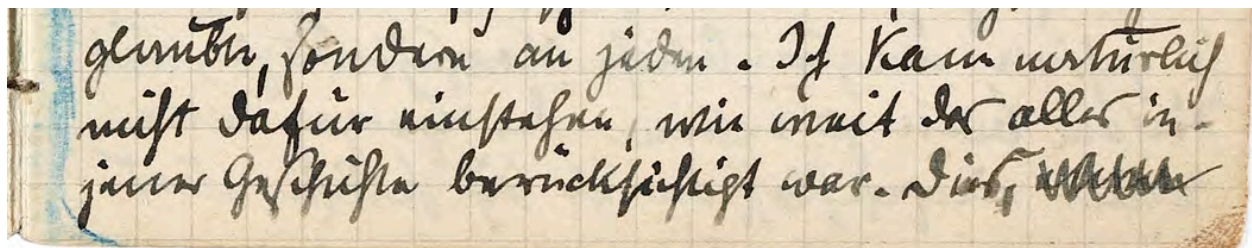 glaubte, sondern an jeden. Ich kann natürlich
nicht dafür einstehen, wie weit das alles in
jener Geschichte berücksichtigt war. Dies,